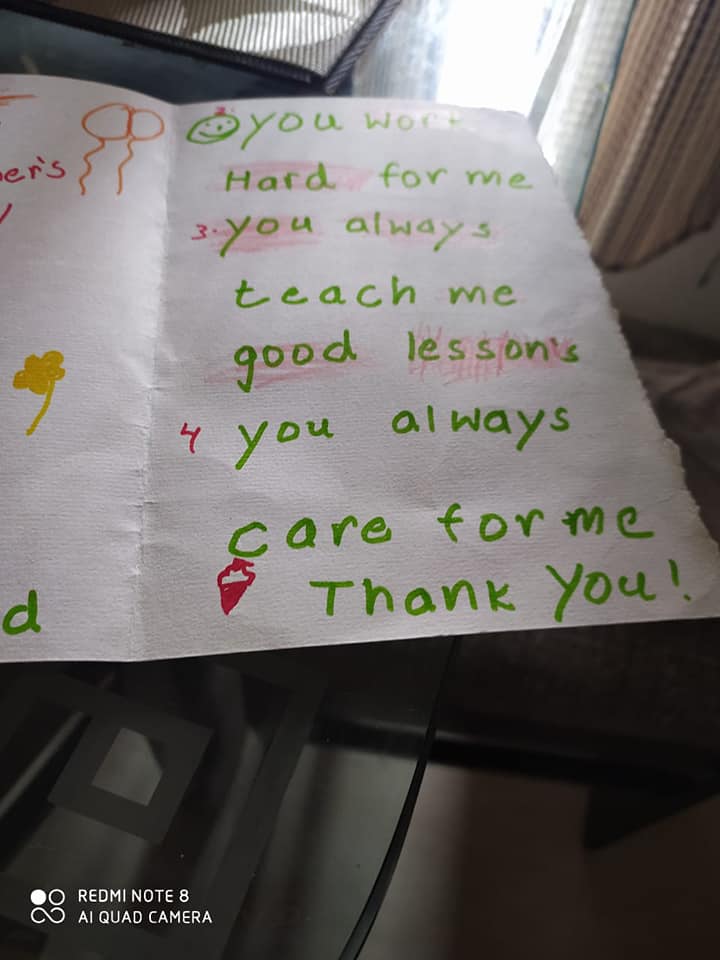 er's
2.
you work
Hard for me
3. you always
teach me
good lesson's
4 you always
care for me
Thank you!
d
REDMI NOTE 8
AI QUAD CAMERA